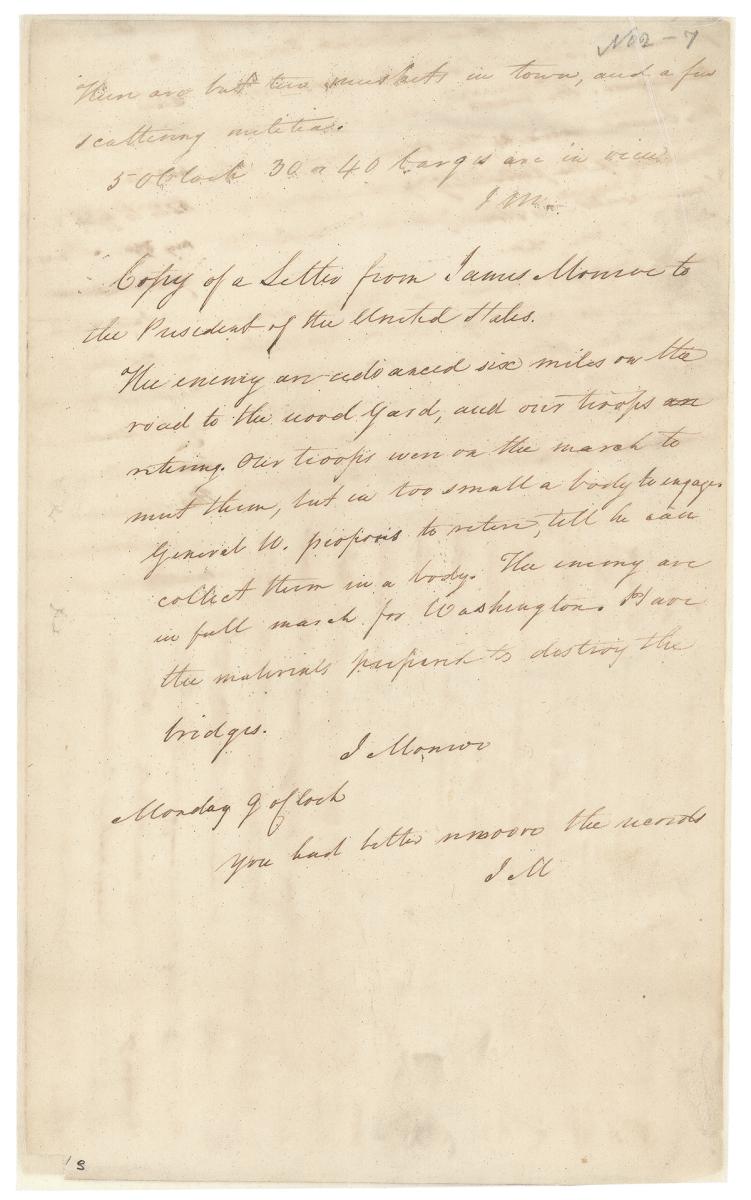 No 2 - 7
There are but two muskets in town, and a few
scattering militia.
5 OClock 30 or 40 barges are in view
J M.
Copy of a Letter from James Monroe to
the President of the United States.
The enemy are advanced six miles on the
road to the wood Yard, and our troops an
retiring. Our troops were on the march to
meet them, but in too small a body to engage.
General W. proposes to retire, till he can
collect them in a body. The enemy are
in full march for Washington. Have
the materials prepared to destroy the
bridges.
J Monroe
Monday 9 oClock
You had better remoove the records
J M